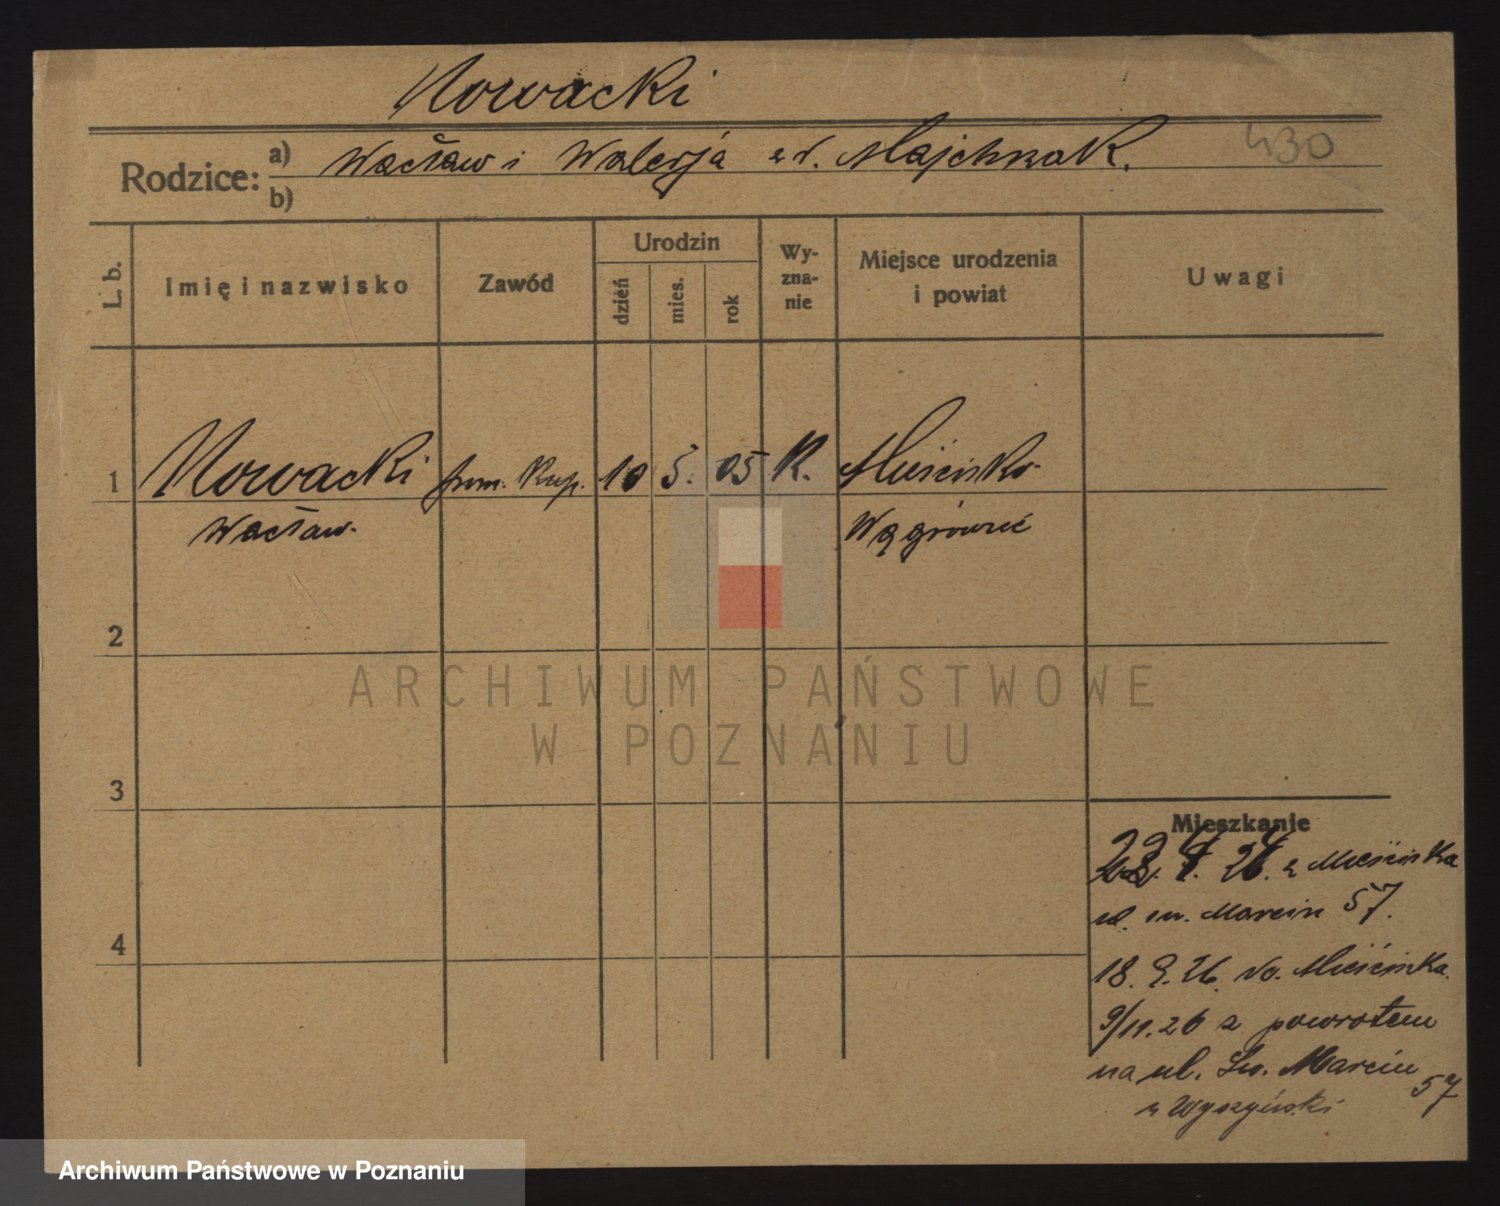 Nowacki
430
Rodzice: a) Wacław i Walerja z d. Majchrzak.
b)
L. b.
Imię i nazwisko
Zawód
Urodzin
dzień
mies.
rok
Wy-
zna-
nie
Miejsce urodzenia
i powiat
Uwagi
1 Nowacki pom. kup. 10 5. 05 K. Mieścisko
Wacław. Wągrowiec
2
ARCHIWUM PAŃSTWOWE
W POZNANIU
3
4
Mieszkanie
22. 4. 26. z Mieściska
ul. św. Marcin 57.
18. 9. 26. do Mieściska
9/11. 26 z powrotem
na ul. Św. Marcin 57
u Wyszyński
Archiwum Państwowe w Poznaniu